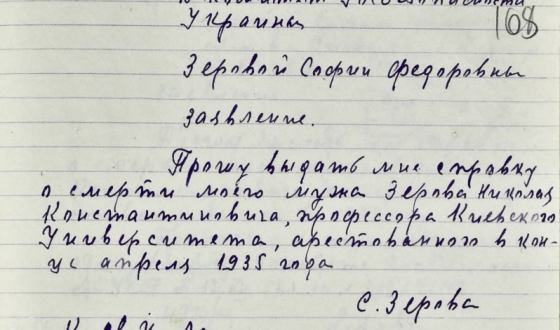 168
Украины
Зеровой Софии Федоровны
Заявление.
Прошу выдать мне справку
о смерти моего мужа Зерова Николая
Константиновича, профессора Киевского
Университета, арестованного в кон-
це апреля 1935 года
С. Зерова